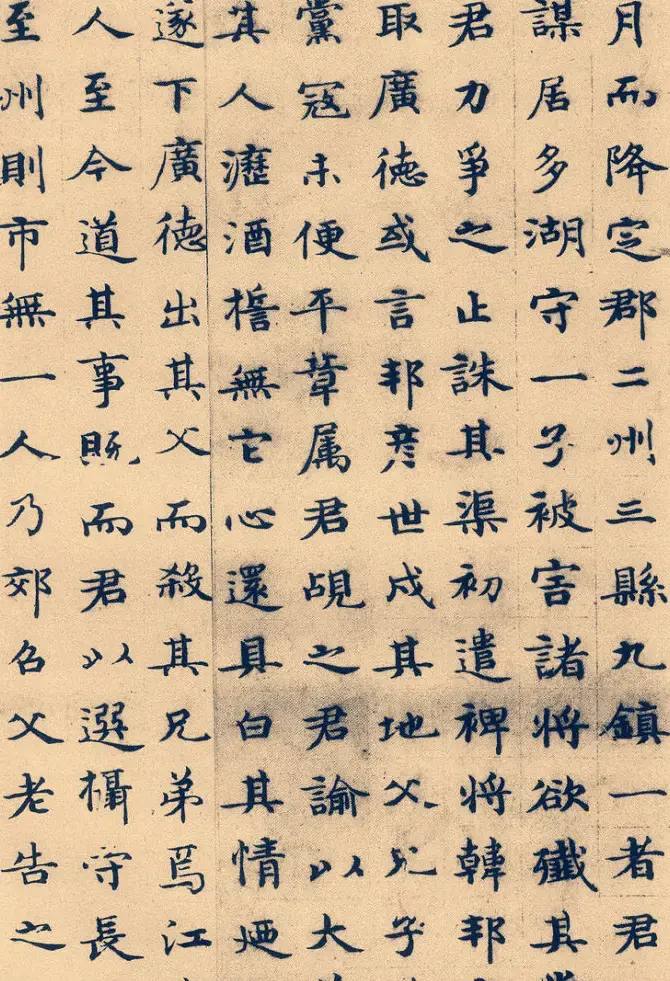 月而降定郡二州三縣九鎮一者君
謀居多湖守一子被害諸將欲殲其
君力爭之止誅其渠初遣裨將韓邦
取廣德或言邦彥世戍其地父兄子
黨寇未便平章属君覘之君諭以大
其人瀝酒誓無它心還具白其情廼
遂下廣德出其父而殺其兄弟焉江
人至今道其事既而君以選攝守長
至州則市無一人乃郊召父老告之